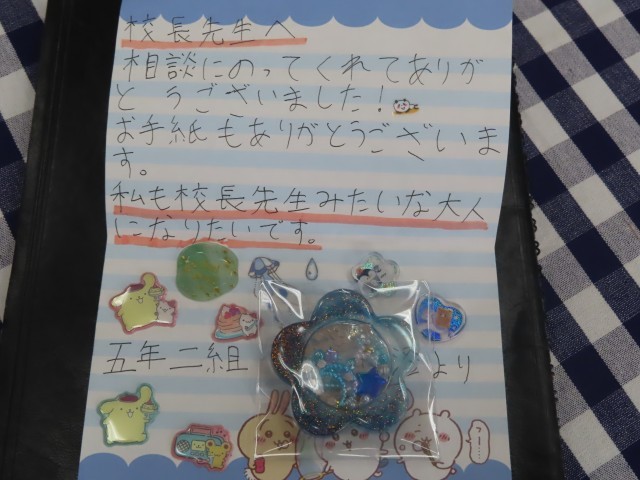 校長先生へ
相談にのってくれてありが
とうございました!
お手紙もありがとうございま
す。
私も校長先生みたいな大人
になりたいです。
五年二組
より